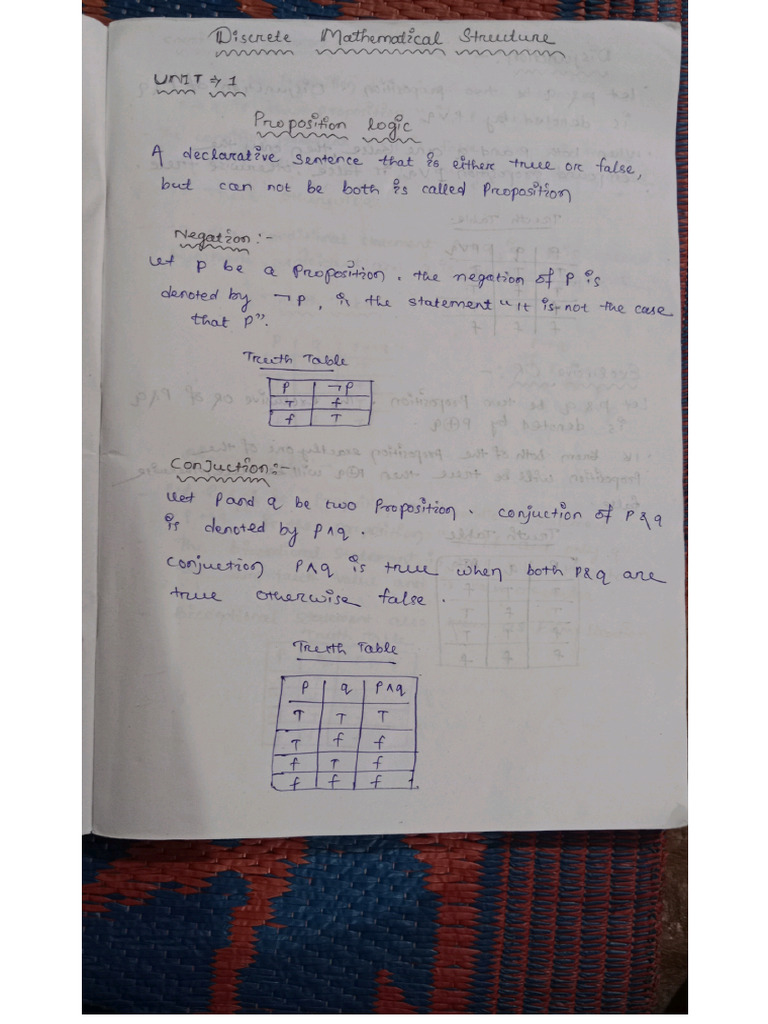 Discrete Mathematical Structure
UNIT → 1
Proposition logic
A declarative sentence that is either true or false,
but can not be both is called Proposition
Negation :-
let p be a Proposition. the negation of P is
denoted by ¬p, is the statement "It is not the case
that p".
Truth Table
P ¬P
T f
f T
Conjuction :-
let P and q be two Proposition. conjuction of P & q
is denoted by P∧q.
conjuction P∧q is true when both P&q are
true otherwise false.
Truth Table
P q P∧q
T T T
T f f
f T f
f f f